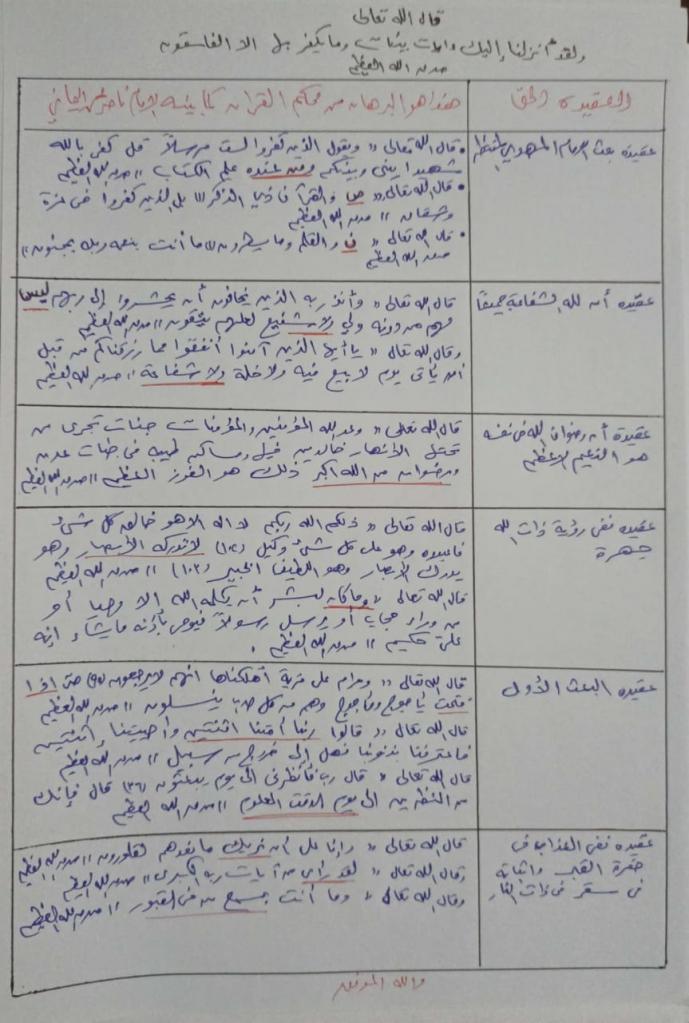 قال الله تعالى
ولقد أنزلنا إليك وايات بينات وما يكفر بها الا الفاسقون
صدق الله العظيم
العقيدة الحق
هذا هو البرهان من محكم القران كما بينه الإمام ناصر محمد اليماني
عقيدة بعث الإمام المهدي المنتظر
• قال الله تعالى « ويقول الذين كفروا لست مرسلاً قل كفى بالله
شهيدا بيني وبينكم ومن عنده علم الكتاب » صدق الله العظيم
• قال الله تعالى « ص والقرآن ذي الذكر (١) بل الذين كفروا في عزة
وشقاق » صدق الله العظيم
• قال الله تعالى « ن والقلم وما يسطرون (١) ما أنت بنعمة ربك بمجنون »
صدق الله العظيم
عقيدة أن لله الشفاعة جميعًا
قال الله تعالى « وأنذر به الذين يخافون أن يحشروا إلى ربهم ليس
لهم من دونه ولي ولا شفيع لعلهم يتقون » صدق الله العظيم
وقال الله تعالى « يا أيها الذين آمنوا أنفقوا مما رزقناكم من قبل
أن يأتى يوم لا بيع فيه ولا خلة ولا شفاعة » صدق الله العظيم
عقيدة أن رضوان الله في نفسه
هو النعيم الاعظم
قال الله تعالى « وعد الله المؤمنين والمؤمنات جنات تجرى من
تحتها الانهار خالدين فيها ومساكن طيبه فى جنات عدن
ورضوان من الله اكبر ذلك هو الفوز العظيم » صدق الله العظيم
عقيده نفى رؤية ذات الله
جهرة
قال الله تعالى « ذلكم الله ربكم لا اله الا هو خالق كل شئ
فاعبدوه وهو على كل شئ وكيل (١٠٢) لا تدركه الأبصار وهو
يدرك الابصار وهو اللطيف الخبير (١٠٣) » صدق الله العظيم
قال الله تعالى « وما كان لبشر أن يكلمه الله الا وحيا أو
من وراء حجاب أو يرسل رسولاً فيوحى بأذنه ما يشاء إنه
على حكيم » صدق الله العظيم .
عقيده البعث الأول
قال الله تعالى « وحرام على قرية أهلكناها انهم لا يرجعون حتى اذا
فتحت يأجوج ومأجوج وهم من كل حدب ينسلون » صدق الله العظيم
قال الله تعالى « قالوا ربنا أمتنا اثنتين وأحييتنا اثنتين
فاعترفنا بذنوبنا فهل إلى خروج من سبيل » صدق الله العظيم
قال الله تعالى « قال رب فأنظرنى الى يوم يبعثون (٣٦) قال فإنك
من المنظرين الى يوم الوقت المعلوم » صدق الله العظيم
عقيده نفى العذاب فى
حفرة القبر واثباته
فى سقر فى ذات النار
قال الله تعالى « وإنا على أن نريك ما نعدهم لقادرون » صدق الله العظيم
وقال الله تعالى « لقد رأى من آيات ربه الكبرى » صدق الله العظيم
وقال الله تعالى « وما أنت بمسمع من فى القبور » صدق الله العظيم
والله الموفق